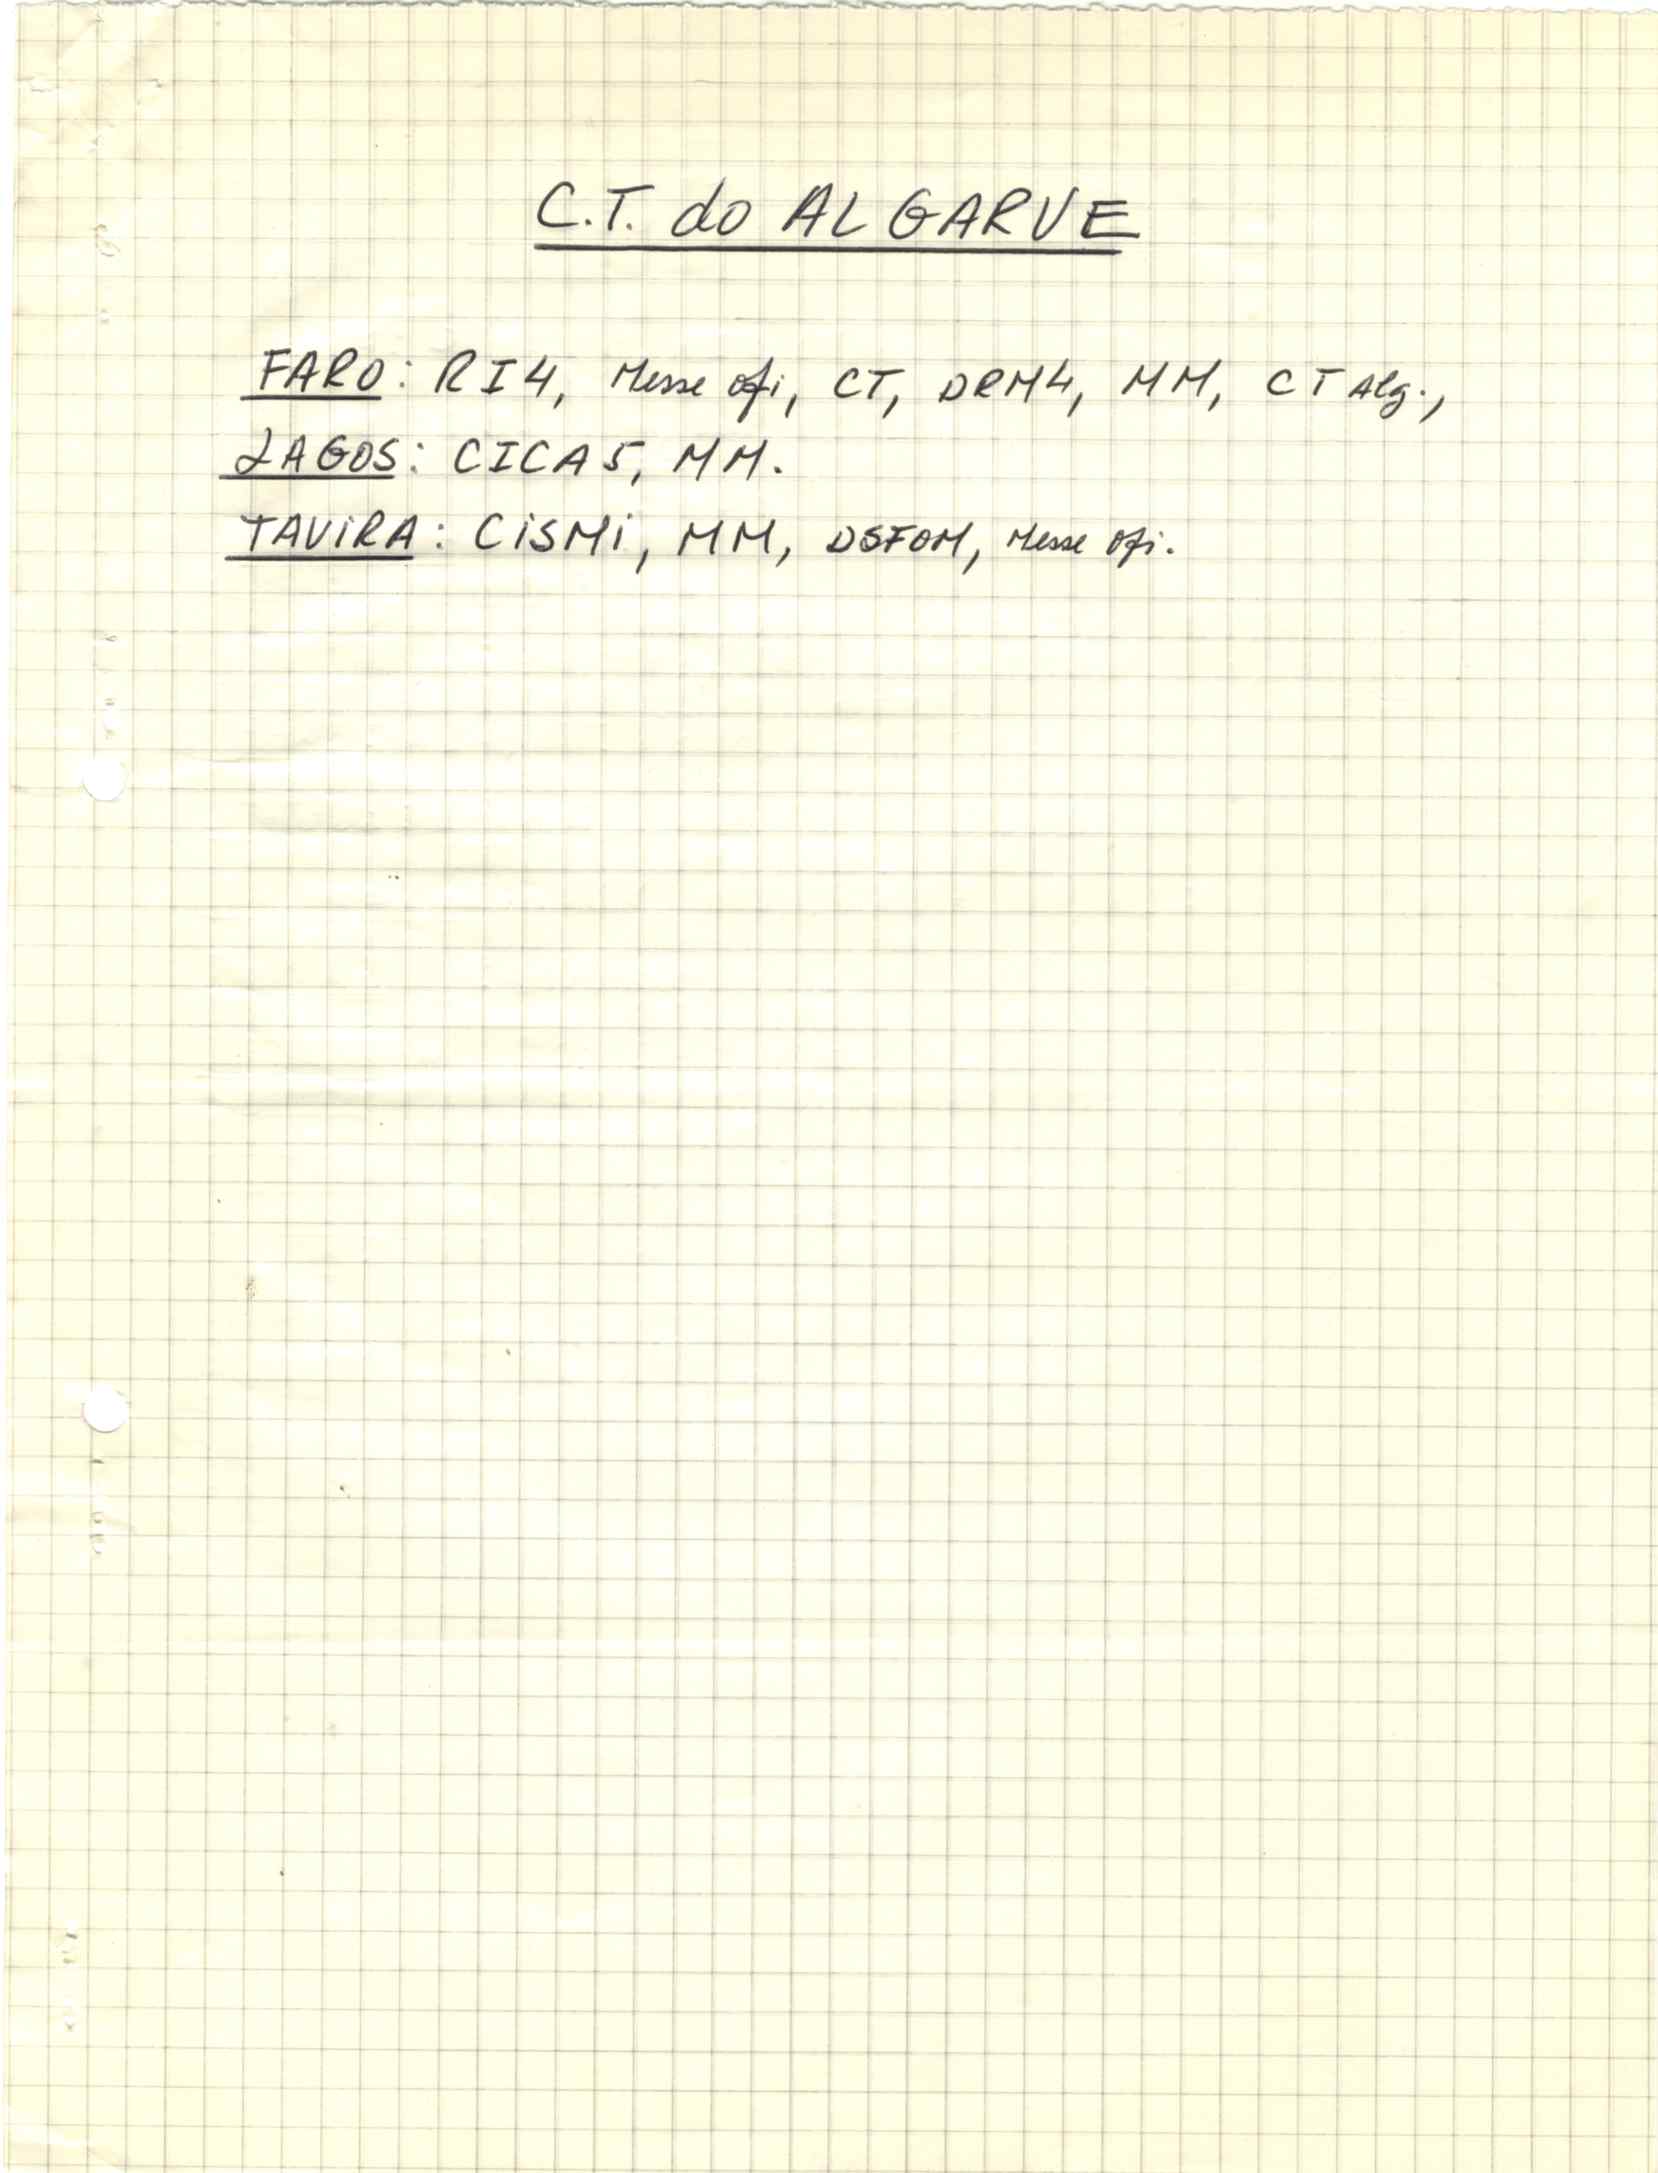 C.T. do ALGARVE
FARO: RI4, Messe ofi, CT, DRM4, MM, CT Alg.,
LAGOS: CICA5, MM.
TAViRA: CiSMi, MM, DSFOM, Messe ofi.